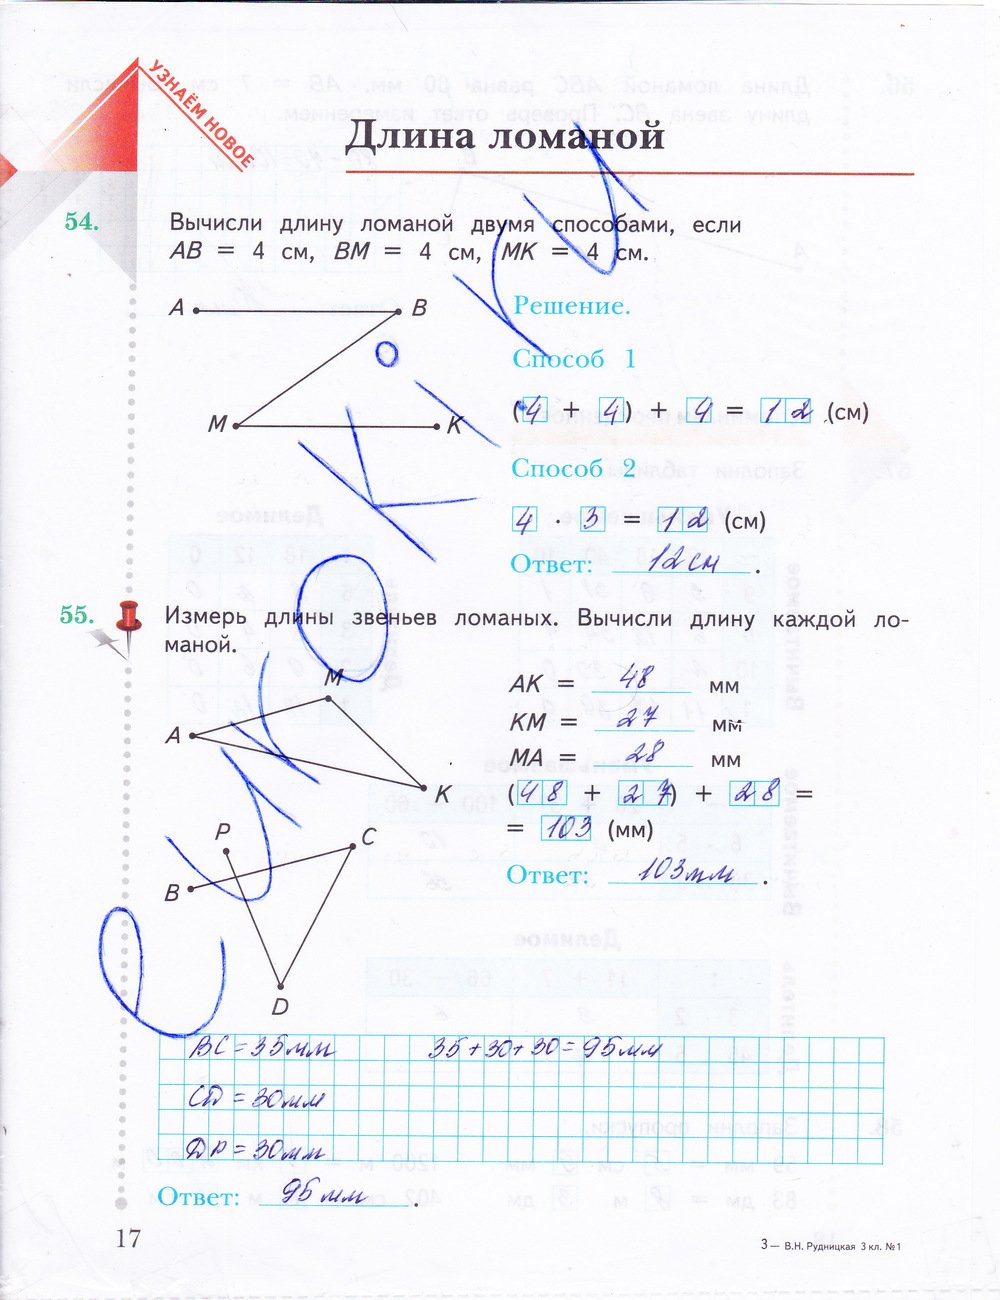 УЗНАЁМ НОВОЕ
Длина ломаной
54.
Вычисли длину ломаной двумя способами, если
AB = 4 см, BM = 4 см, MK = 4 см.
A
B
M
K
Решение.
Способ 1
(4 + 4) + 4 = 12 (см)
Способ 2
4 · 3 = 12 (см)
Ответ: 12 см.
55.
Измерь длины звеньев ломаных. Вычисли длину каждой ло-
маной.
M
A
K
AK = 48 мм
KM = 27 мм
MA = 28 мм
(48 + 27) + 28 =
= 103 (мм)
Ответ: 103 мм.
P
C
B
D
BC = 35 мм 35 + 30 + 30 = 95 мм
CD = 30 мм
DP = 30 мм
Ответ: 95 мм.
17
3 — В.Н. Рудницкая 3 кл. №1